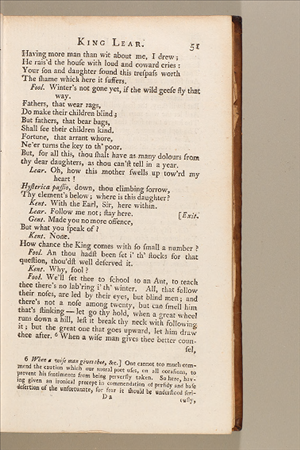 KING LEAR. 51
Having more man than wit about me, I drew;
He rais'd the house with loud and coward cries:
Your son and daughter found this trespass worth
The shame which here it suffers.
Fool. Winter's not gone yet, if the wild geese fly that
way.
Fathers, that wear rags,
Do make their children blind;
But fathers, that bear bags,
Shall see their children kind.
Fortune, that arrant whore,
Ne'er turns the key to th' poor.
But, for all this, thou shalt have as many dolours from
thy dear daughters, as thou can'st tell in a year.
Lear. Oh, how this mother swells up tow'rd my
heart!
Hysterica passio, down, thou climbing sorrow,
Thy element's below; where is this daughter?
Kent. With the Earl, Sir, here within.
Lear. Follow me not; stay here. [Exit.
Gent. Made you no more offence,
But what you speak of?
Kent. None.
How chance the King comes with so small a number?
Fool. An thou hadst been set i' th' stocks for that
question, thou'dst well deserved it.
Kent. Why, fool?
Fool. We'll set thee to school to an Ant, to teach
thee there's no lab'ring i' th' winter. All, that follow
their noses, are led by their eyes, but blind men; and
there's not a nose among twenty, but can smell him
that's stinking—let go thy hold, when a great wheel
runs down a hill, lest it break thy neck with following
it; but the great one that goes upward, let him draw
thee after. 6 When a wise man gives thee better coun-
sel,
6 When a wise man gives thee, &c.] One cannot too much com-
mend the caution which our moral poet uses, on all occasions, to
prevent his sentiments from being perversly taken. So here, hav-
ing given an ironical precept in commendation of perfidy and base
desertion of the unfortunate, for fear it should be understood seri-
D 2
ously,